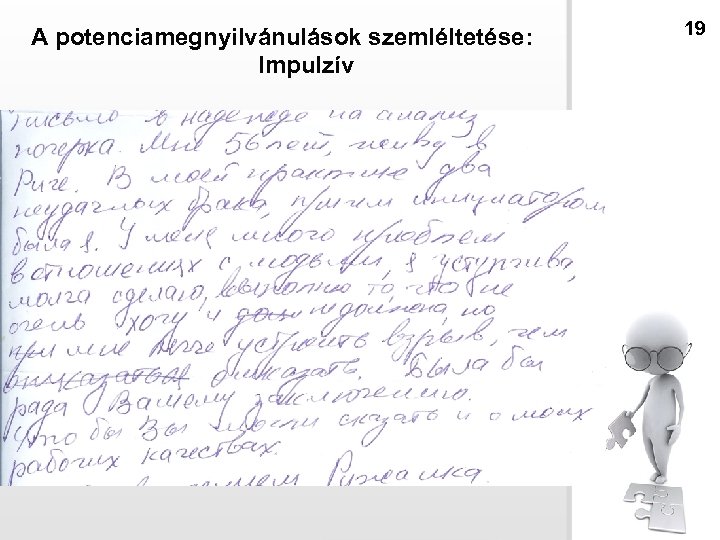 A potenciamegnyilvánulások szemléltetése:
Impulzív
19
письмо в надежде на анализ
почерка. Мне 56 лет, живу в
Риге. В моей практике два
неудачных брака, причем инициатором
была я. У меня много проблем
в отношениях с людьми, я уступчива,
молча сделаю, выполню то, что не
очень хочу и не должна, но
при мне легче устроить взрыв, чем
отказать. Была бы
рада Вашему заключению.
Что бы Вы могли сказать и о моих
рабочих качествах.
Рижанка